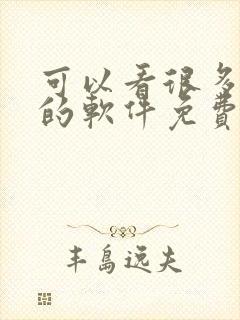 可以看很多
的軟件免費
丰島远夫